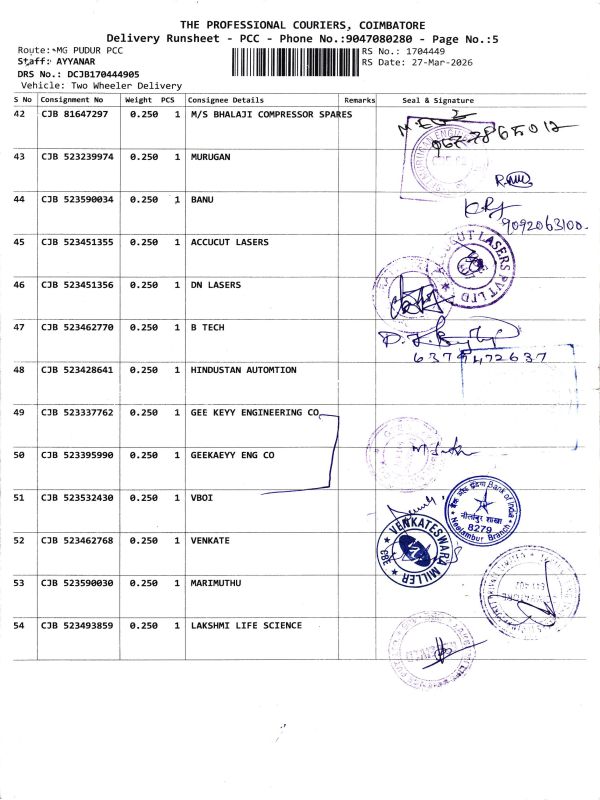 THE PROFESSIONAL COURIERS, COIMBATORE
Delivery Runsheet - PCC - Phone No.:9047080280 - Page No.:5
Route: MG PUDUR PCC
RS No.: 1704449
Staff: AYYANAR
RS Date: 27-Mar-2026
DRS No.: DCJB170444905
Vehicle: Two Wheeler Delivery
S No Consignment No Weight PCS Consignee Details Remarks Seal & Signature
42 CJB 81647297 0.250 1 M/S BHALAJI COMPRESSOR SPARES
43 CJB 523239974 1 0.250 MURUGAN
44 CJB 523590034 0.250 1 BANU
9092063100.
45 CJB 523451355 0.250 1 ACCUCUT LASERS
ACCUCUT LASERS PVT LTD
46 CJB 523451356 0.250 1 DN LASERS
47 CJB 523462770 0.250 1 B TECH
6379472637
48 CJB 523428641 0.250 1 HINDUSTAN AUTOMTION
49 CJB 523337762 0.250 1 GEE KEYY ENGINEERING CO
50 CJB 523395990 0.250 1 GEEKAEYY ENG CO
51 CJB 523532430 0.250 1 VBOI
Bank of India
नीलांबुर शाखा
8279
Neelambur Branch
52 CJB 523462768 0.250 1 VENKATE
VENKATESWARA MILLER CBE
53 CJB 523590030 0.250 1 MARIMUTHU
54 CJB 523493859 0.250 1 LAKSHMI LIFE SCIENCE